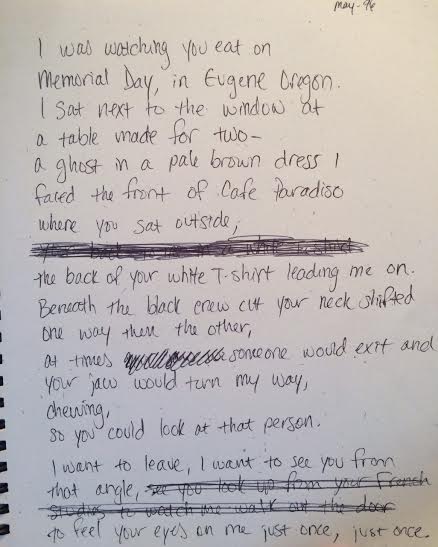 may - 96
I was watching you eat on
Memorial Day, in Eugene Oregon.
I sat next to the window at
a table made for two-
a ghost in a pale brown dress I
faced the front of Cafe Paradiso
where you sat outside,
the back of your white T-shirt leading me on.
Beneath the black crew cut your neck shifted
one way then the other,
at times someone would exit and
your jaw would turn my way,
chewing,
so you could look at that person.
I want to leave, I want to see you from
that angle, see you look up from your French
studies to watch me walk out the door
to feel your eyes on me just once, just once.